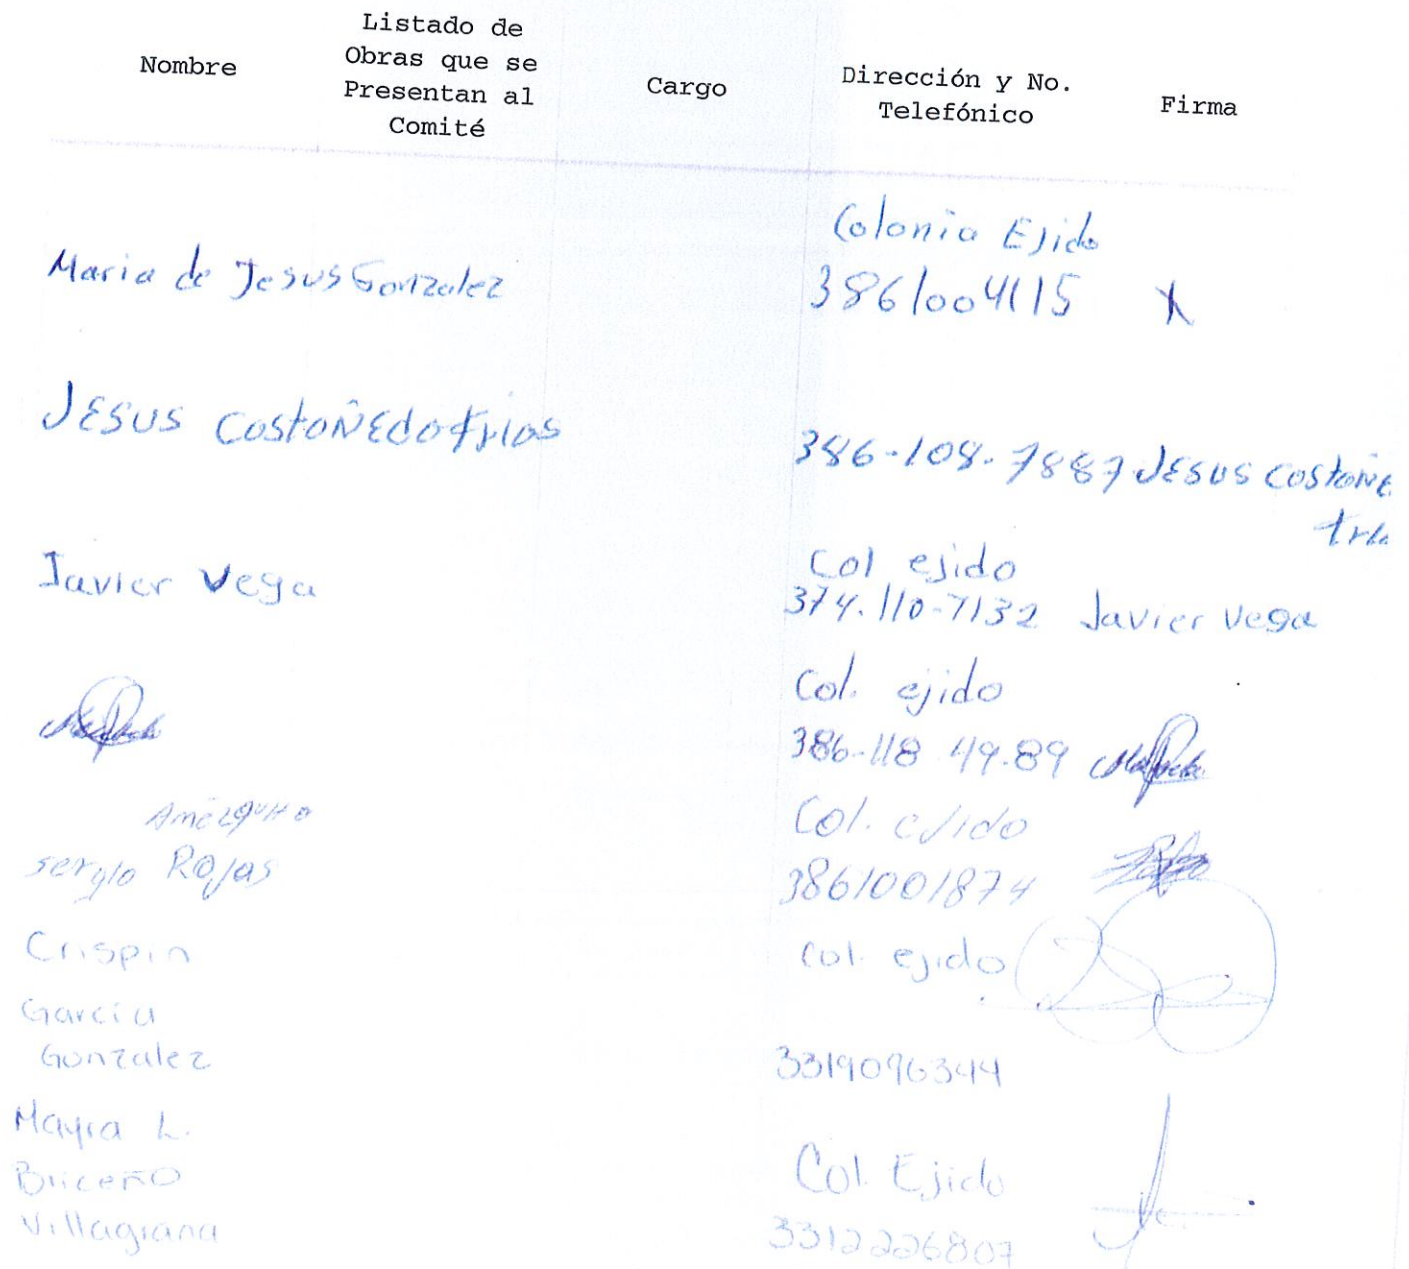 Nombre
Listado de
Obras que se
Presentan al
Comité
Cargo
Dirección y No.
Telefónico
Firma
Maria de Jesus Gonzalez
Colonia Ejido
3861004115
X
JESUS COSTOÑEDO FRIAS
386-108-7887
JESUS COSTOÑE
Javier Vega
Col ejido
374-110-7132
Javier Vega
Col. ejido
386-118 49-89
Amezquita
Sergio Rojas
Col. ejido
3861001874
Crispin
Garcia
Gonzalez
Col. ejido
3319096344
Mayra L.
Briceño
Villagrana
Col. Ejido
3312226807